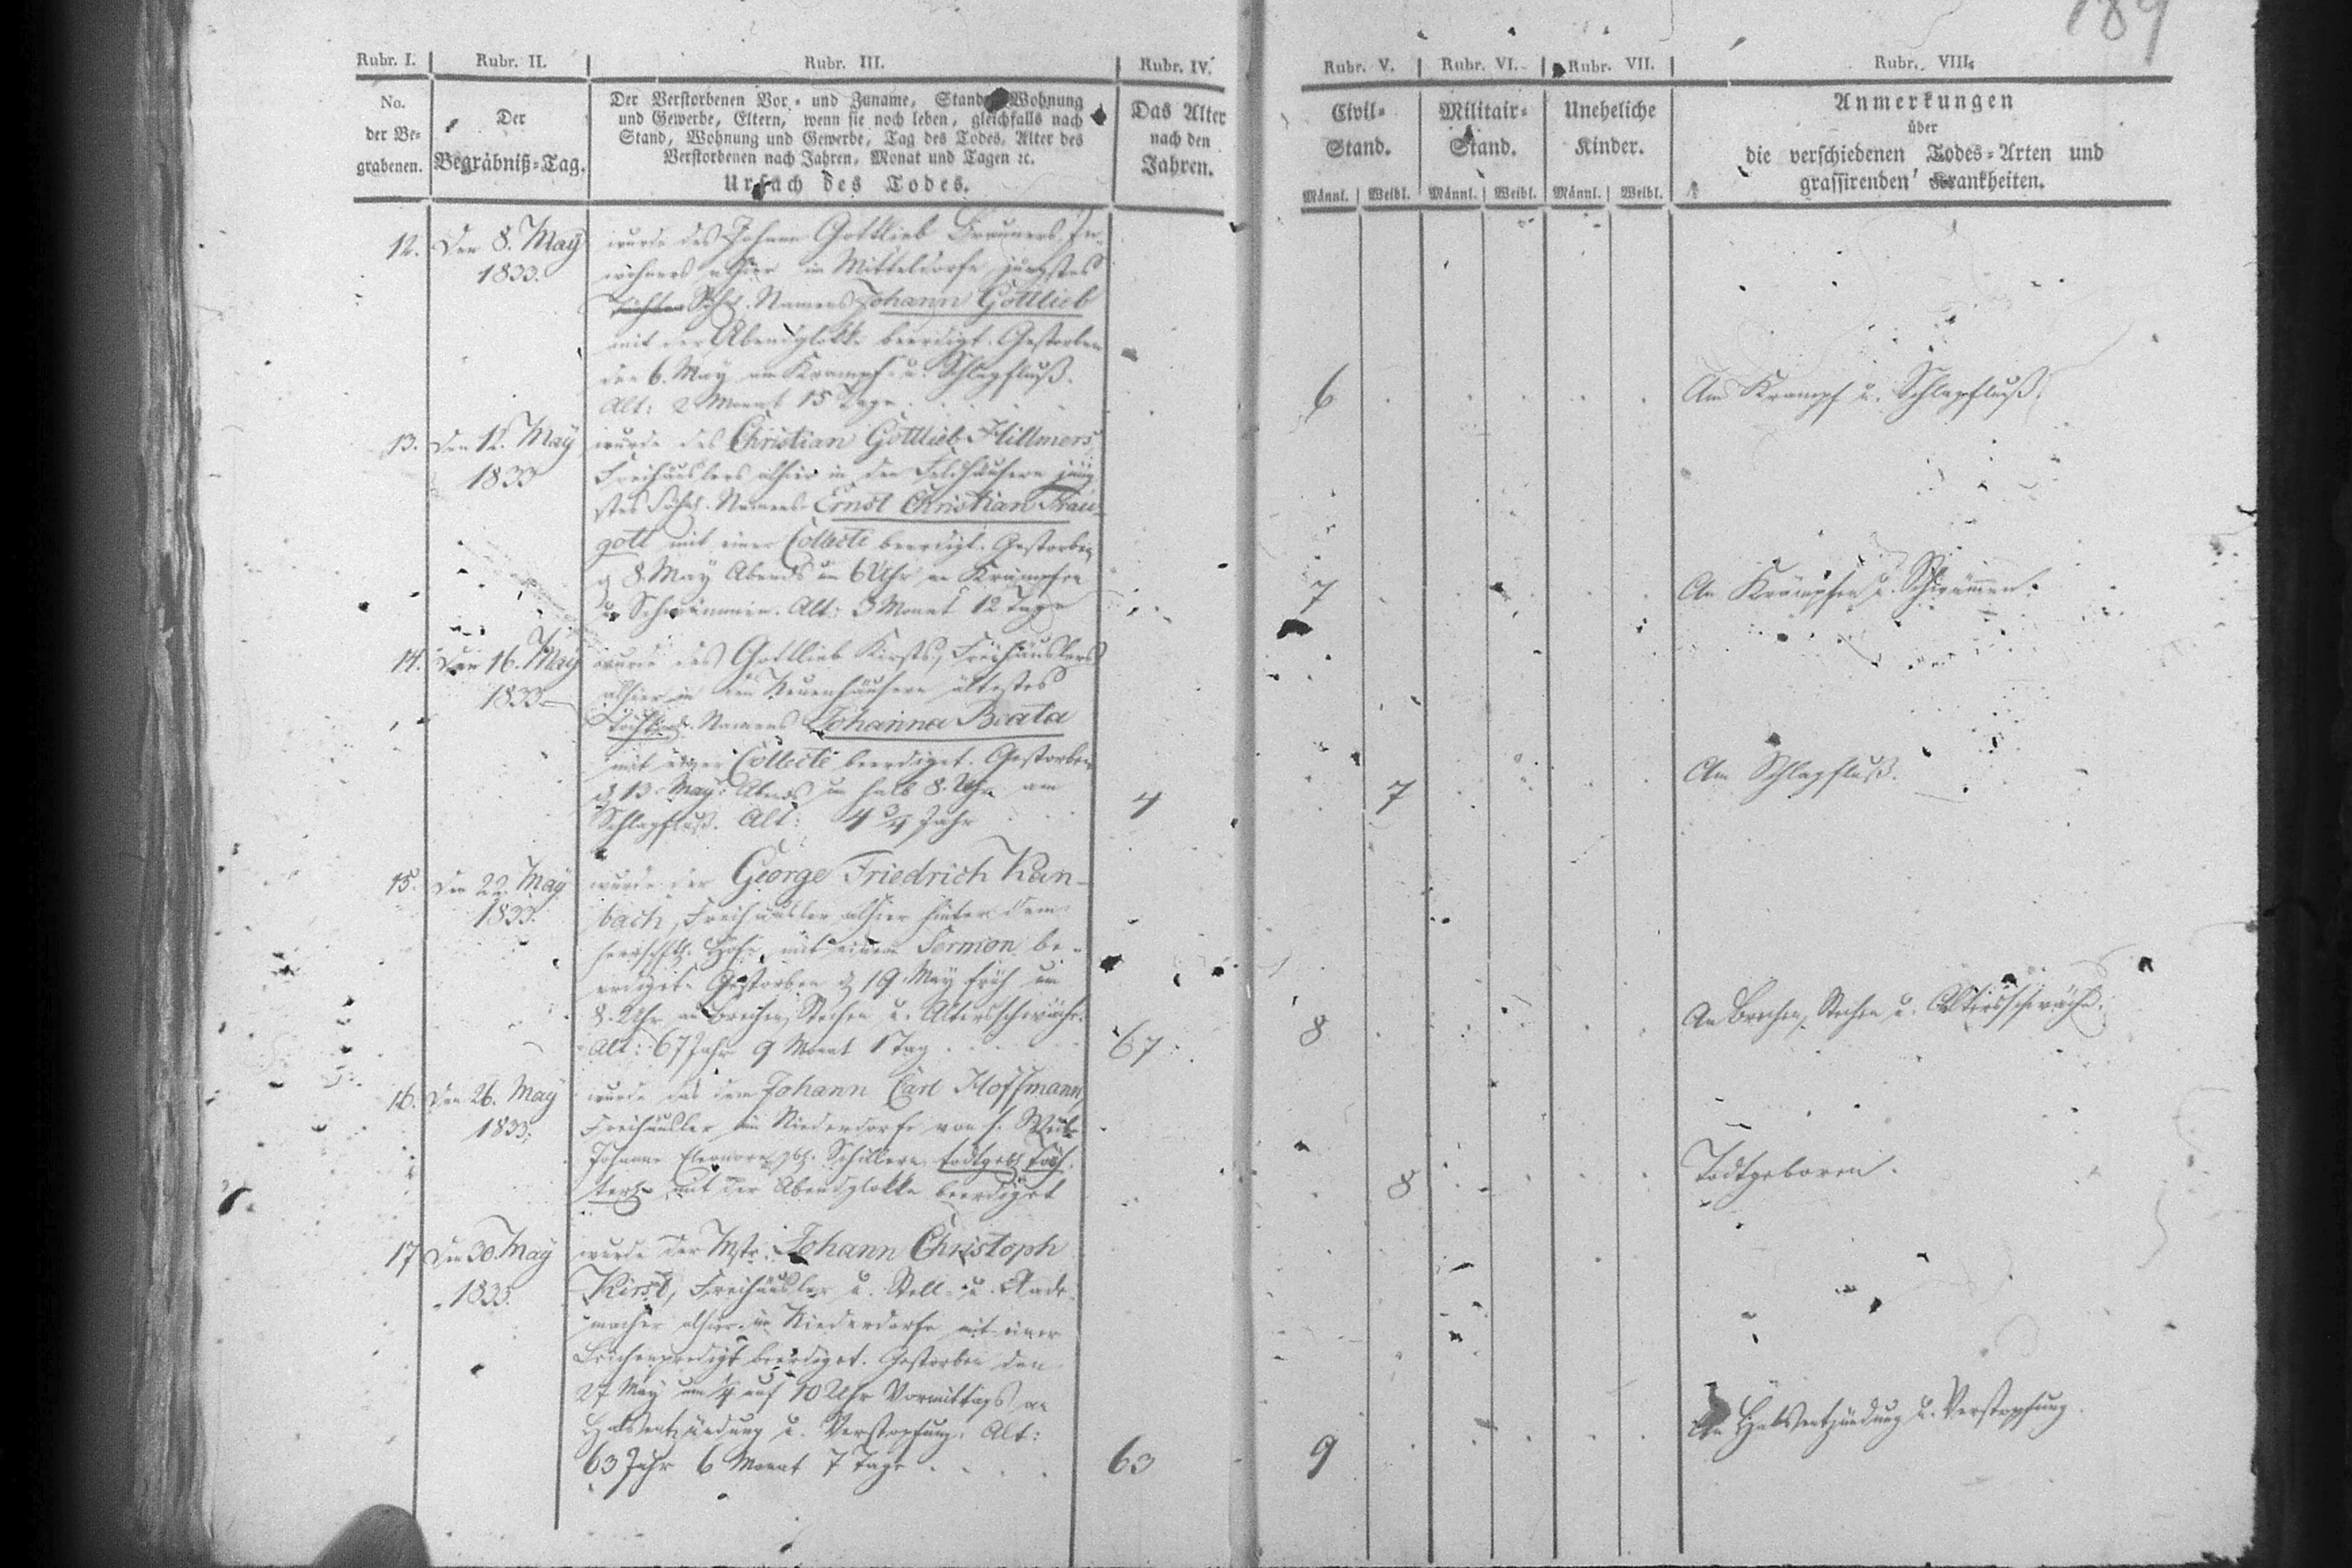 189
Rubr. I. Rubr. II. Rubr. III. Rubr. IV. Rubr. V. Rubr. VI. Rubr. VII. Rubr. VIII.
No.
der Be-
grabenen.
Der
Begräbniß-Tag.
Der Verstorbenen Vor- und Zuname, Stand, Wohnung
und Gewerbe, Eltern, wenn sie noch leben, gleichfalls nach
Stand, Wohnung und Gewerbe, Tag des Todes, Alter des
Verstorbenen nach Jahren, Monat und Tagen ꝛc.
Ursach des Todes.
Das Alter
nach den
Jahren.
Civil-
Stand.
Männl. Weibl.
Militair-
Stand.
Männl. Weibl.
Uneheliche
Kinder.
Männl. Weibl.
Anmerkungen
über
die verschiedenen Todes-Arten und
grassirenden Krankheiten.
12. Den 8. May
1833.
wurde des Johann Gottlieb Brauners, In-
wohners alhier im Mitteldorfe jüngstes
Söhnl. Namens Johann Gottlieb
mit der Abendglokke beerdigt. Gestorben
den 6. May am Krampf u. Schlagfluß.
Alt: 2 Monat 15 Tage.
6
Am Krampf u. Schlagfluß.
13. Den 12. May
1833
wurde des Christian Gottlieb Hillmers,
Freihäuslers alhier in den Feldhäusern jüng-
stes Söhnl. Namens Ernst Christian Trau-
gott mit einer Collecte beerdigt. Gestorben
d 8. May Abends um 6 Uhr an Krämpfen
u. Schwämmen. Alt: 3 Monat 12 Tage
7
An Krämpfen u. Schwämmen.
14. Den 16. May
1833
wurde des Gottlieb Kirsts, Freihäuslers
alhier in den Neuenhäusern ältestes
Töchterl. Namens Johanna Beata
mit einer Collecte beerdiget. Gestorben
d 13. May Abends um halb 8. Uhr am
Schlagfluß. Alt: 4 3/4 Jahr
4
7
Am Schlagfluß.
15. Den 22. May
1833.
wurde der George Friedrich Kan-
bach, Freihäusler alhier hinter dem
herrschftl. Hofe, mit einem Sermon be-
erdiget. Gestorben d 19. May früh um
8. Uhr an Brechen, Stechen u. Altersschwäche.
Alt: 67 Jahr 9 Monat 1 Tag.
67
8
An Brechen, Stechen u. Altersschwäche.
16. Den 26. May
1833.
wurde das dem Johann Carl Hoffmann,
Freihäusler im Niederdorfe von s. Weibe
Johanne Eleonore gb. Schillern todtgeb. Töch-
terl. mit der Abendglokke beerdiget
8
Todtgeboren.
17 Den 30. May
1833.
wurde der Mstr. Johann Christoph
Kirst, Freihäusler u. Stell- u. Rade-
macher alhier im Niederdorfe mit einer
Leichenpredigt beerdiget. Gestorben den
27 May um auf 10 Uhr Vormittags an
Halsentzündung u. Verstopfung. Alt:
63 Jahr 6 Monat 7 Tage.
63
9
An Halsentzündung u. Verstopfung.